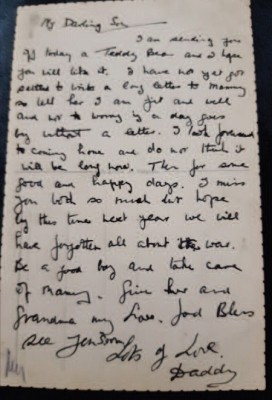 My Darling Son
I am sending you
today a Teddy Bear and I hope
you will like it. I have not yet got
settled to write a long letter to Mummy
so tell her I am fit and well
and not to worry if a day goes
by without a letter. I look forward
to coming home and do not think it
will be long now. Then for some
good and happy days. I miss
you both so much but hope
by this time next year we will
have forgotten all about the war.
Be a good boy and take care
of Mummy. Give her and
Grandma my Love. God Bless
Lots of Love.
Daddy